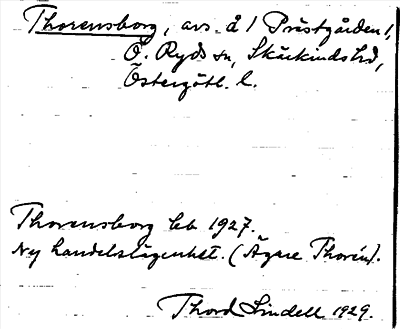 Thorensborg, avs. å 1 Prästgården 1,
Ö. Ryds sn, Skärkinds hd,
Östergötl. l.
Thorensborg leb 1927.
Ny handelslägenhet. (Ägare Thorén).
Thord Lindell 1929.